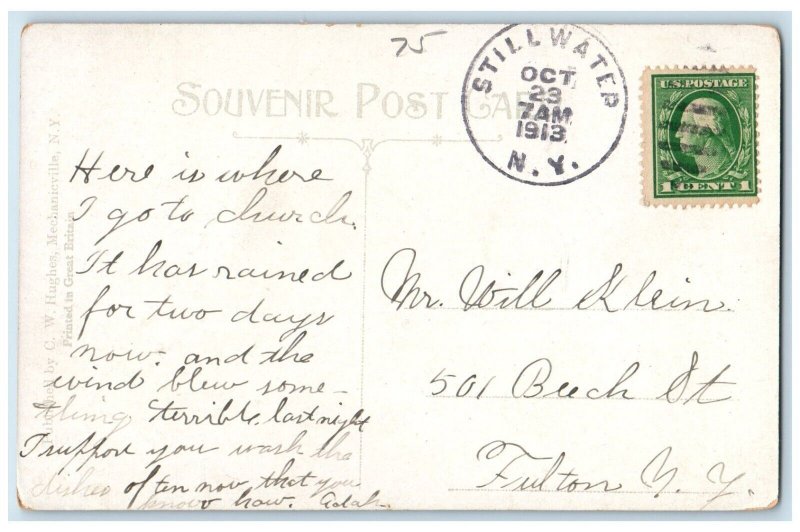 75
STILLWATER
OCT
23
7AM
1913
N.Y.
U.S. POSTAGE
1 CENT 1
SOUVENIR POST CARD
Published by C. W. Hughes, Mechanicville, N.Y.
Printed in Great Britain
Here is where
I go to church.
It has rained
for two days
now. and the
wind blew some-
thing terrible, last night
I suppose you wash the
dishes often now, that you
know how. Adah
Mr. Will Klein
501 Beech St
Fulton N. Y.